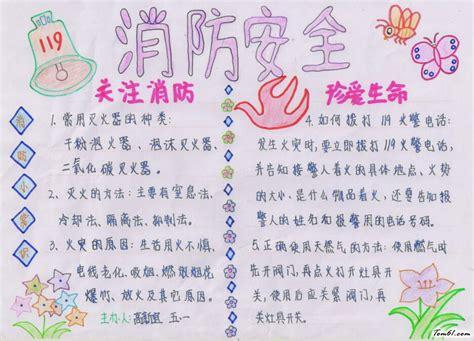 119
消防安全
关注消防
珍爱生命
消防小常识
1. 常用灭火器的种类:
干粉灭火器、泡沫灭火器、
二氧化碳灭火器。
2、灭火的方法:主要有窒息法、
冷却法、隔离法、抑制法。
3、火灾的原因:生活用火不慎、
电线老化、吸烟、燃放烟花
爆竹、放火及其它等。
主办人: 五一
4. 如何拨打119火警电话:
发生火灾时,要立即拨打119火警电话,
并告知接警人着火的具体地点、火势
的大小、是什么物品着火,还要告知报
警人的姓名和报警用的电话号码。
5. 正确使用天然气的方法:使用燃气时
先开阀门,再点火打开灶具开
关。使用后应关紧阀门,再
关灶具开关。
Tom61.com